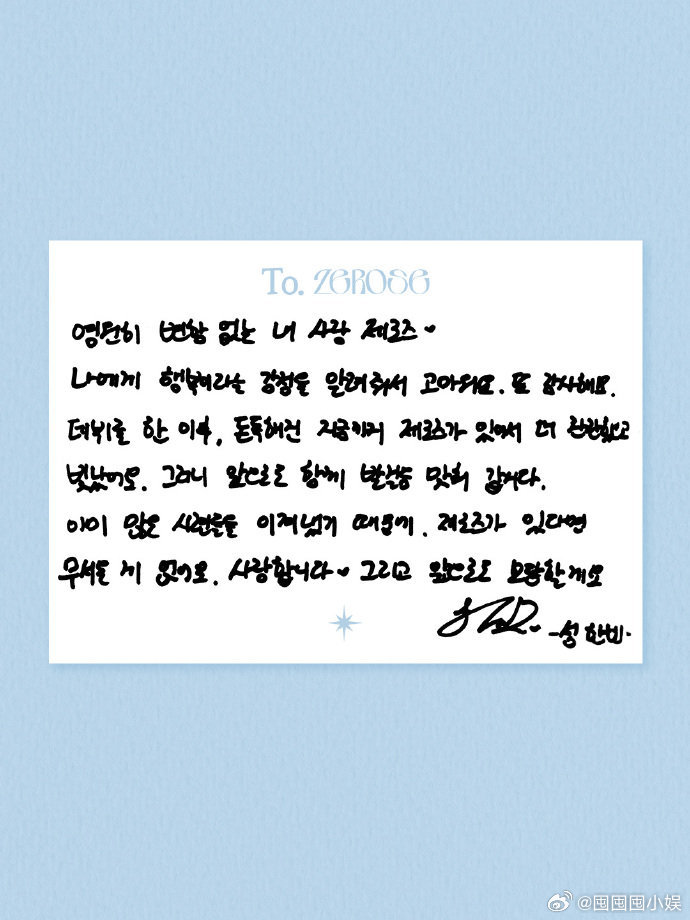 To. ZEROSE
영원히 변함 없는 내 사랑 제로즈♥
나에게 행복이라는 감정을 알려줘서 고마워요. 또 감사해요.
데뷔를 한 이후, 돈독해진 지금까지 제로즈가 있어서 더 단단했고
빛났어요. 그러니 앞으로도 함께 발걸음 맞춰 갑시다.
이미 많은 시련들을 이겨냈기 때문에, 제로즈가 있다면
무서울 게 없어요. 사랑합니다♥ 그리고 앞으로도 보답할게요
-성한빈-
@囤囤囤小娱